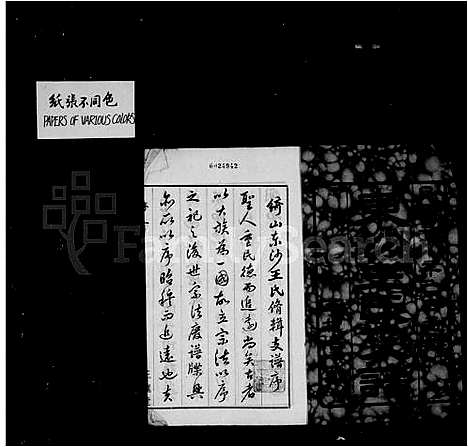 紙張不同色
PAPERS OF VARIOUS COLORS
6024942
FamilySearch
綺山東沙王氏脩輯支譜序
聖人重民德而追遠尚矣古者
以大族為一國故立宗法以序
之祀之後世宗法廢譜牒興
亦所以序昭穆而追遠也夫